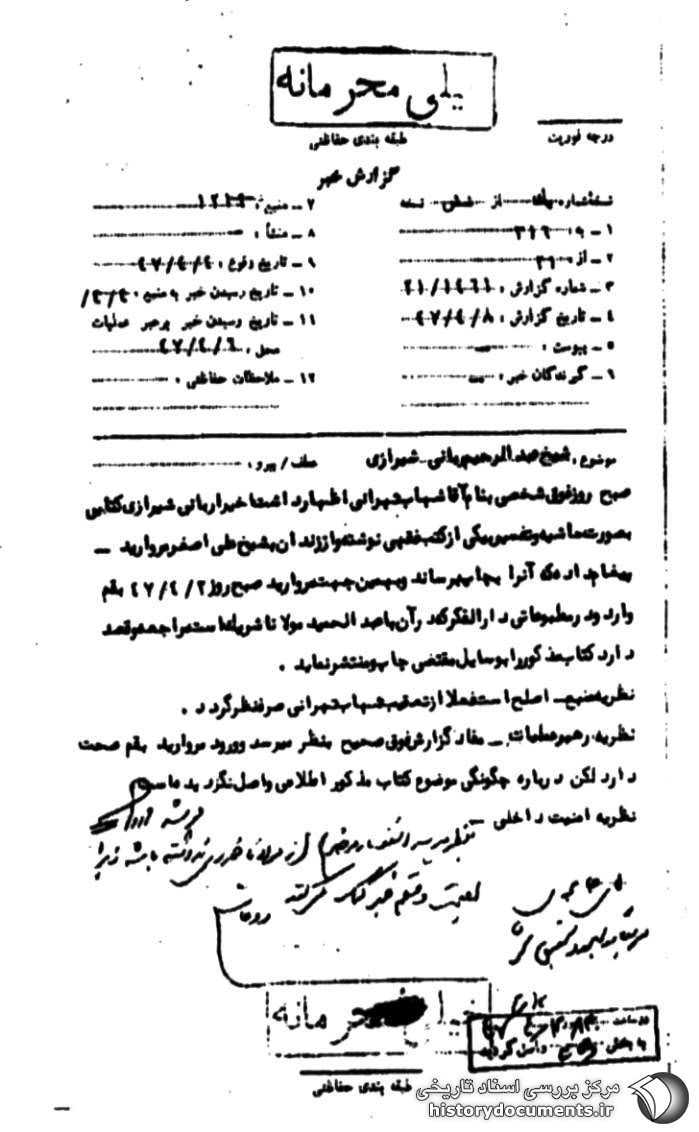 خیلی محرمانه
طبقه بندی حفاظتی
درجه فوریت
گزارش خبر
نسخه شماره از نسخه
۱ ـ به : ۳۱۶
۲ ـ از : ۳۱۰
۳ ـ شماره گزارش : ۲۱/۱۴۶۱
۴ ـ تاریخ گزارش : ۴۷/۴/۸
۵ ـ پیوست :
۶ ـ گیرندگان خبر :
۷ ـ منبع :
۸ ـ منشأ :
۹ ـ تاریخ وقوع : ۴۷/۴/۴
۱۰ ـ تاریخ رسیدن خبر به منبع :
۱۱ ـ تاریخ رسیدن خبر برهبر عملیات
محل : ۴۷/۴/۶
۱۲ ـ ملاحظات حفاظتی :
موضوع : شیخ عبدالرحیم ربانی شیرازی
عطف / پیرو :
صبح روز فوق شخصی بنام آقا شهاب تهرانی اظهار داشت اخیرا ربانی شیرازی کتابی
بصورت حاشیه و تفسیر بریکی از کتب فقهی نوشته و از زندان بشیخ علی اصغر مروارید ـ
پیغام داده که آنرا بچاپ برساند و بهمین جهت مروارید صبح روز ۴۷/۴/۲ بقم
وارد و در مطبوعاتی دارالفکر که در آن با عبدالحمید مولانا شریک است مراجعه و قصد
دارد کتاب مذکور را بوسایل مقتضی چاپ و منتشر نماید .
نظریه منبع ـ اصلح است فعلا از تعقیب شهاب تهرانی صرفنظر گردد .
نظریه رهبر عملیات ـ مفاد گزارش فوق صحیح بنظر میرسد و ورود مروارید بقم صحت
دارد لکن درباره چگونگی موضوع کتاب مذکور اطلاعی واصل نگردیده است
نظریه امنیت داخلی ـ
خیلی محرمانه
در ساعت
به بخش واصل گردید
طبقه بندی حفاظتی
مرکز بررسی اسناد تاریخی
historydocuments.ir